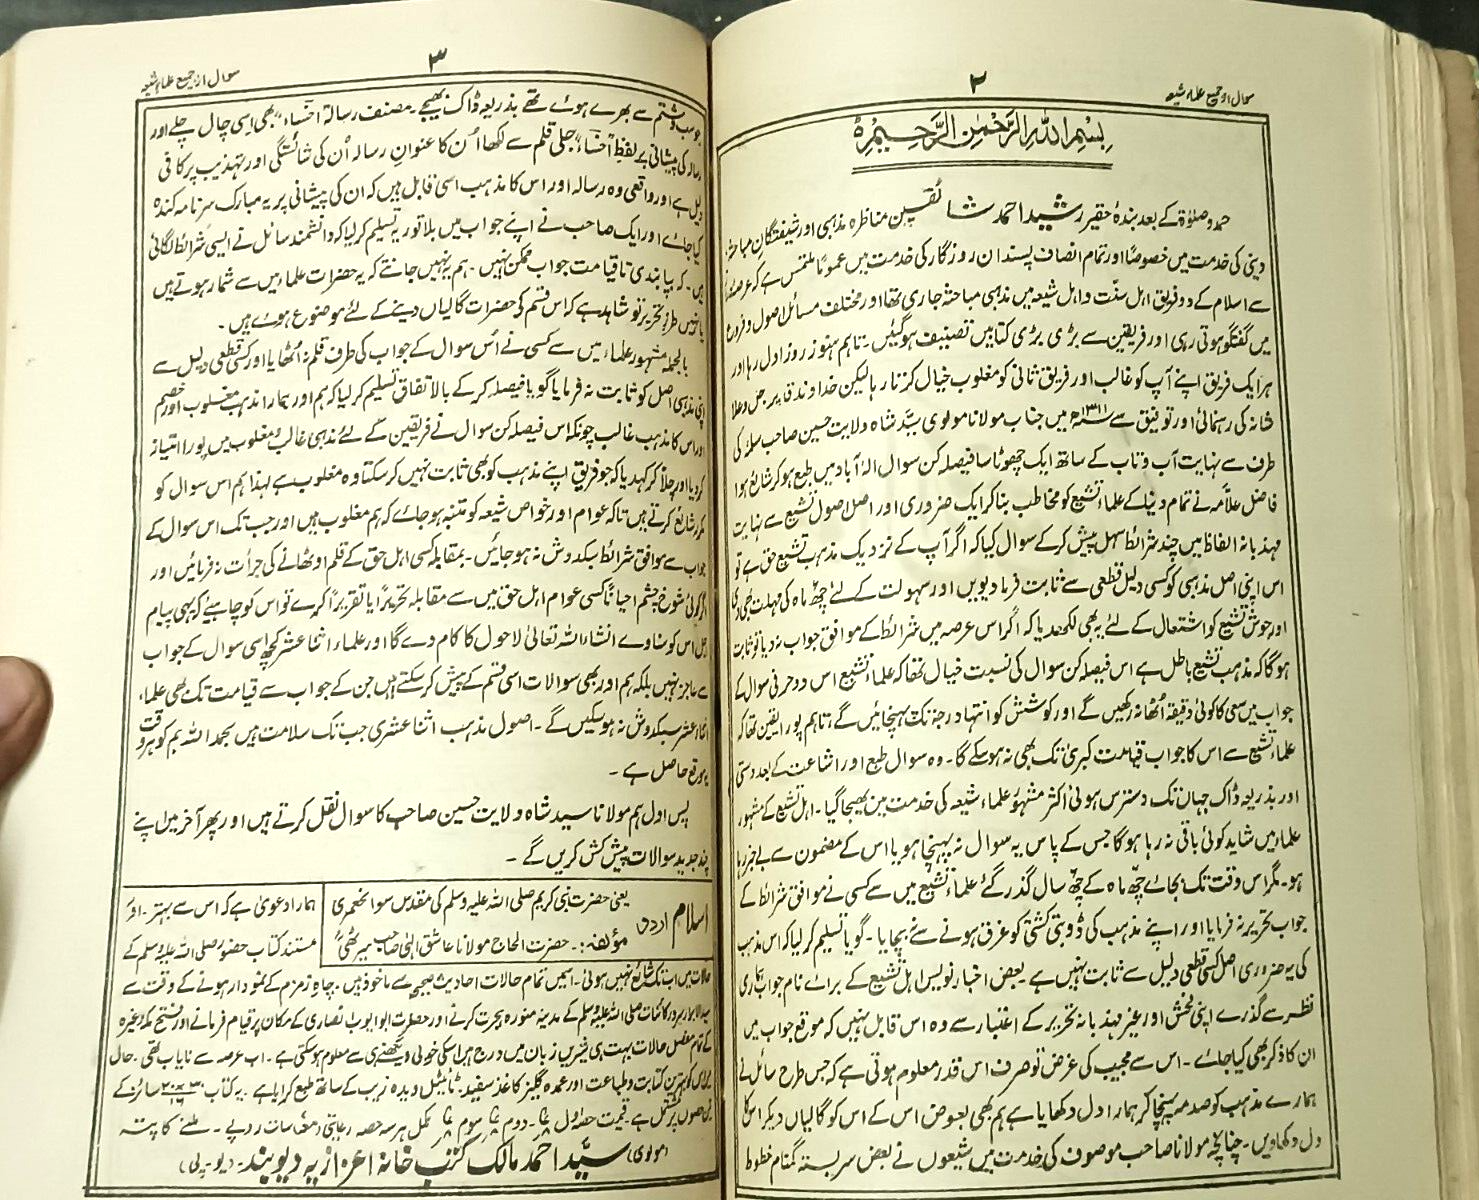 سوال از جمیع علماء شیعہ
۲
بِسْمِ اللهِ الرَّحْمٰنِ الرَّحِيْمِ
حمد و صلوٰۃ کے بعد بندہ حقیر رشید احمد شائقین مناظرہ مذہبی اور شیفتگانِ مباحثہ
دینی کی خدمت میں خصوصًا اور تمام انصاف پسندان روزگار کی خدمت میں عمومًا ملتمس ہے کہ عرصہ
سے اسلام کے دو فریق اہل سنّت و اہل شیعہ میں مذہبی مباحثہ جاری تھا اور مختلف مسائل اصول و فروع
میں گفتگو ہوتی رہی اور فریقین سے بڑی بڑی کتابیں تصنیف ہوگئیں۔ تاہم ہنوز روز اول رہا اور
ہر ایک فریق اپنے آپ کو غالب اور فریق ثانی کو مغلوب خیال کرتا رہا لیکن خداوند قدیر جل و علا
شانہ کی رہنمائی اور توفیق سے ۱۳۱۱ھ میں جناب مولانا مولوی سیّد شاہ ولایت حسین صاحب سلمہ کی
طرف سے نہایت آب و تاب کے ساتھ ایک چھوٹا سا فیصلہ کن سوال الہ آباد میں طبع ہوکر شائع ہوا
فاضل علامہ نے تمام دنیا کے علماء تشیع کو مخاطب بناکر ایک ضروری اور اصل اصول تشیع سے نہایت
مہذبانہ الفاظ میں چند شرائط سہل پیش کرکے سوال کیا کہ اگر آپ کے نزدیک مذہب تشیع حق ہے تو
اس اپنی اصل مذہبی کو کسی دلیل قطعی سے ثابت فرمادیویں اور سہولت کے لئے چھ ماہ کی مہلت بھی دی
اور جوش تشیع کو اشتعال کے لئے یہ بھی لکھدیا کہ اگر اس عرصہ میں شرائط کے موافق جواب نہ دیا تو ثابت
ہوگا کہ مذہب تشیع باطل ہے اس فیصلہ کن سوال کی نسبت خیال تھا کہ علماء تشیع اس دو حرفی سوال کے
جواب میں سعی کا کوئی دقیقہ اُٹھا نہ رکھیں گے اور کوشش کو انتہا درجہ تک پہنچائیں گے، تاہم پورا یقین تھا کہ
علماء تشیع سے اس کا جواب قیامت کبریٰ تک بھی نہ ہوسکے گا۔ وہ سوال طبع اور اشاعت کے بعد دستی
اور بذریعہ ڈاک جہاں تک دسترس ہوئی اکثر مشہور علماء شیعہ کی خدمت میں بھیجا گیا۔ اہل تشیع کے مشہور
علماء میں شاید کوئی باقی نہ رہا ہوگا جس کے پاس یہ سوال نہ پہنچا ہو یا اس کے مضمون سے بے خبر رہا
ہو۔ مگر اس وقت تک بجائے چھ ماہ کے چھ سال گذر گئے علماء تشیع میں سے کسی نے موافق شرائط کے
جواب تحریر نہ فرمایا اور اپنے مذہب کی ڈوبتی کشتی کو غرق ہونے سے نہ بچایا۔ گویا تسلیم کرلیا کہ اس مذہب
کی یہ ضروری اصل کسی قطعی دلیل سے ثابت نہیں ہے بعض اخبار نویس اہل تشیع کے برائے نام جواب ہماری
نظر سے گذرے اپنی فحش اور غیر مہذبانہ تحریر کے اعتبار سے وہ اس قابل نہیں کہ موقع جواب میں
ان کا ذکر بھی کیا جائے۔ اس سے مجیب کی غرض تو صرف اس قدر معلوم ہوتی ہے کہ جس طرح سائل نے
ہمارے مذہب کو صدمہ پہنچاکر ہمارا دل دکھایا ہے ہم بھی بعوض اس کے اس کو گالیاں دیکر اس کا
دل دکھاویں۔ چنانچہ مولانا صاحب موصوف کی خدمت میں شیعوں نے بعض سربستہ گمنام خطوط
سوال از جمیع علماء شیعہ
۳
جو سب و شتم سے بھرے ہوئے تھے بذریعہ ڈاک بھیجے۔ مصنف رسالہ اخساء بھی اسی چال چلے اور
رسالہ کی پیشانی پر لفظ اخساء جلی قلم سے لکھا اُن کا عنوانِ رسالہ اُن کی شائستگی اور تہذیب پر کافی
دلیل ہے اور واقعی وہ رسالہ اور اس کا مذہب اسی قابل ہیں کہ ان کی پیشانی پر یہ مبارک سرنامہ کندہ
کیا جائے اور ایک صاحب نے اپنے جواب میں بلا توریہ تسلیم کرلیا کہ دانشمند سائل نے ایسی شرائط لگائی
ہیں۔ کہ بپابندی تا قیامت جواب ممکن نہیں۔ ہم یہ نہیں جانتے کہ یہ حضرات علماء میں سے شمار ہوتے ہیں
یا نہیں طرز تحریر تو شاہد ہے کہ اس قسم کی حضرات گالیاں دینے کے لئے موضوع ہوئے ہیں۔
بالجملہ مشہور علماء میں سے کسی نے اُس سوال کے جواب کی طرف قلم نہ اُٹھایا اور کسی قطعی دلیل سے
اپنی مذہبی اصل کو ثابت نہ فرمایا گویا فیصلہ کرکے بالاتفاق تسلیم کرلیا کہ ہم اور ہمارا مذہب مغلوب اور خصم
اور اس کا مذہب غالب چونکہ اس فیصلہ کن سوال نے فریقین کے لئے مذہبی غالب و مغلوب میں پورا امتیاز
کردیا اور چلّا کر کہدیا کہ جو فریق اپنے مذہب کو بھی ثابت نہیں کرسکتا وہ مغلوب ہے لہذا ہم اس سوال کو
مکرر شائع کرتے ہیں تاکہ عوام اور خواص شیعہ کو متنبہ ہوجائے کہ ہم مغلوب ہیں اور جب تک اس سوال کے
جواب سے موافق شرائط سبکدوش نہ ہوجائیں۔ بمقابلہ کسی اہل حق کے قلم اوٹھانے کی جرأت نہ فرمائیں اور
اگر کوئی شوخ چشم احیانًا کسی عوام اہل حق میں سے مقابلہ تحریرًا یا تقریرًا کرے تو اس کو چاہیئے کہ یہی پیام
اجل اس کو سناوے انشاء اللہ تعالیٰ لاحول کا کام دے گا اور علماء اثنا عشر کچھ اسی سوال کے جواب
سے عاجز نہیں بلکہ ہم اور بھی سوالات اسی قسم کے پیش کرسکتے ہیں جن کے جواب سے قیامت تک بھی علماء
اثنا عشر سبکدوش نہ ہوسکیں گے۔ اصول مذہب اثنا عشری جب تک سلامت ہیں بحمد اللہ ہم کو ہر وقت
یہ موقع حاصل ہے۔
پس اول ہم مولانا سید شاہ ولایت حسین صاحب کا سوال نقل کرتے ہیں اور پھر آخر میں اپنے
چند جدید سوالات پیش کش کریں گے۔
اسلام اردو
یعنی حضرت نبی کریم صلی اللہ علیہ وسلم کی مقدس سوانحعمری
مؤلفہ:۔ حضرت الحاج مولانا عاشق الٰہی صاحب میرٹھی
ہمارا دعویٰ ہے کہ اس سے بہتر اور
مستند کتاب حضور صلی اللہ علیہ وسلم کے
حالات میں اب تک شائع نہیں ہوئی۔ اسمیں تمام حالات احادیث صحیحہ سے ماخوذ ہیں۔ چاہِ زمزم کے نمودار ہونے کے وقت سے
سرور کائنات صلی اللہ علیہ وسلم کے مدینہ منورہ ہجرت کرنے اور حضرت ابو ایوب انصاری کے مکان پر قیام فرمانے اور فتح مکہ وغیرہ
کے تمام مفصل حالات بہت ہی شیریں زبان میں درج ہیں اسکی خوبی دیکھنے ہی سے معلوم ہوسکتی ہے۔ اب عرصہ سے نایاب تھی۔ حال
میں اس کو بہترین کتابت و طباعت اور عمدہ گلیز کاغذ سفید۔ ٹائیٹل دیدہ زیب کے ساتھ طبع کرایا ہے۔ یہ کتاب ۲۰×۳۰/۱۶ سائز کے
حصوں پر مشتمل ہے۔ قیمت حصہ اول دوم سوم مکمل ہر سہ حصہ رعایتی روپے۔ ملنے کا پتہ
(مولوی) سیّد احمد مالک کتب خانہ اعزازیہ دیوبند۔ (یو۔پی)